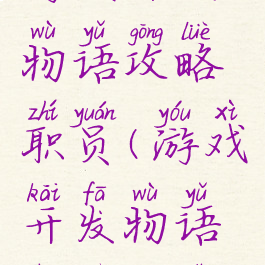 wù yǔ gōng lüè
物语攻略
zhí yuán yóu xì
职员(游戏
kāi fā wù yǔ
开发物语